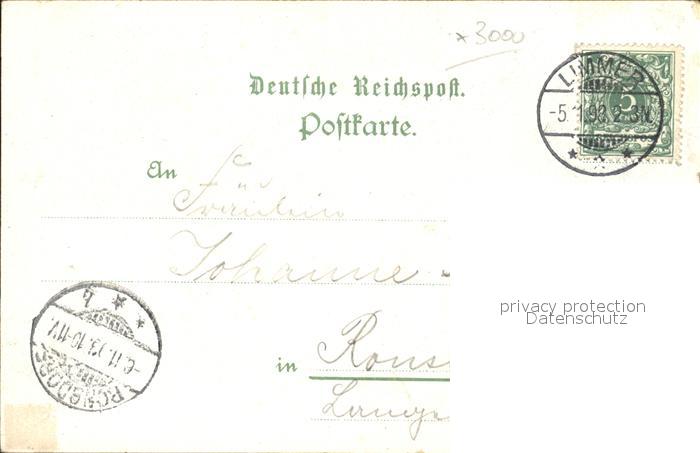 x 3000
Deutsche Reichspost.
Postkarte.
LIMMER
-5.11.98.2-3N.
5
An
Fräulein
Johanne
in Rons
Lange
RONSDORF
-6.11.93.10-11V.
b
privacy protection
Datenschutz